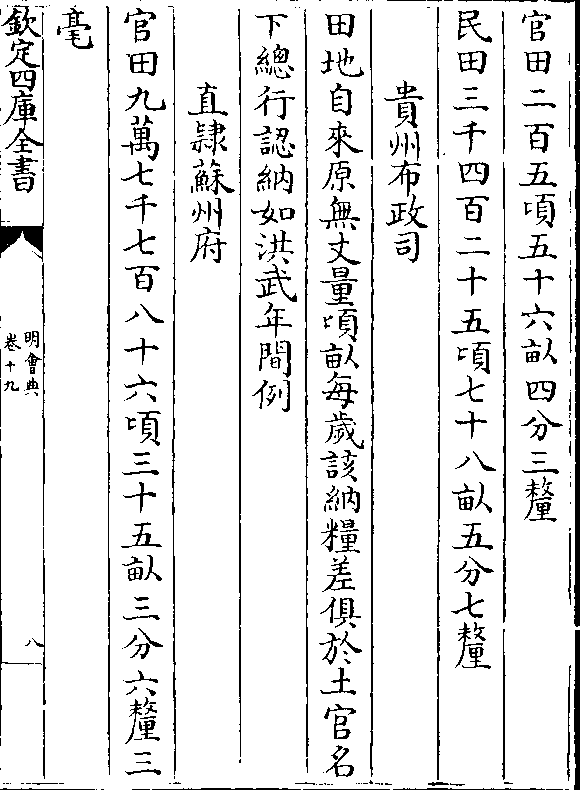 官田二百五頃五十六畝四分三釐
民田三千四百二十五頃七十八畝五分七釐
貴州布政司
田地自來原無丈量頃畝每歲該納糧差俱於土官名
下總行認納如洪武年間例
直隸蘇州府
官田九萬七千七百八十六頃三十五畝三分六釐三
毫
欽定四庫全書
明會典
卷十九
八